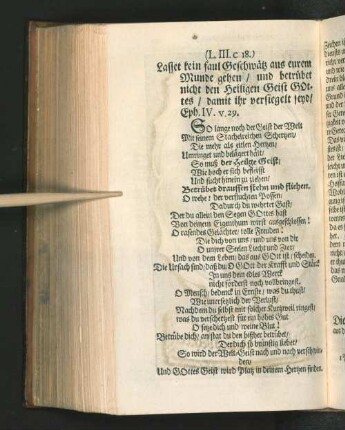 (L. III. c 18.)
Lasset kein faul Geschwätz aus eurem
Munde gehen / und betrübet
nicht den Heiligen Geist GOt-
tes / damit ihr versiegelt seyd/
Eph. IV. v. 29.
SO lange noch der Geist der Welt
Mit seinem Stachelreichen Schertzen/
Die mehr als eitlen Hertzen/
Umringet und belägert hält/
So muß der Heilge Geist/
Wie hoch er sich befleißt
Und sucht hinein zu ziehen/
Betrübet draussen stehn und fliehen.
O wehe! der verfluchten Possen!
Dadurch du wehrter Gast/
Der du allein den Segen GOttes hast
Von deinem Eigenthum wirst ausgeschlossen!
O rasendes Gelächter! tolle Freuden!
Die dich von uns/ und uns von dir
O unsrer Seelen Liecht und Zier/
Und von dem Leben/ das aus GOtt ist/ scheidet.
Die Ursach sind/ daß du O GOtt der Krafft und Stärck
In uns dein edles Werck
nicht förderst noch vollbringest.
O Mensch/ bedenck in Ernste/ was du thust/
Wie unersetzlich der Verlust/
Nach dem du selbst mit solcher Kurtzweil ringest/
was du verschertzest für ein hohes Gut
O seufze dich und weine Blut!
Betrübe dich/ anstat du den bisher betrübet/
Der dich so brünstig liebet/
So wird der Welt-Geist nach und nach verschwin-
den/
Und GOttes Geist wird Platz in deinem Hertzen finden.